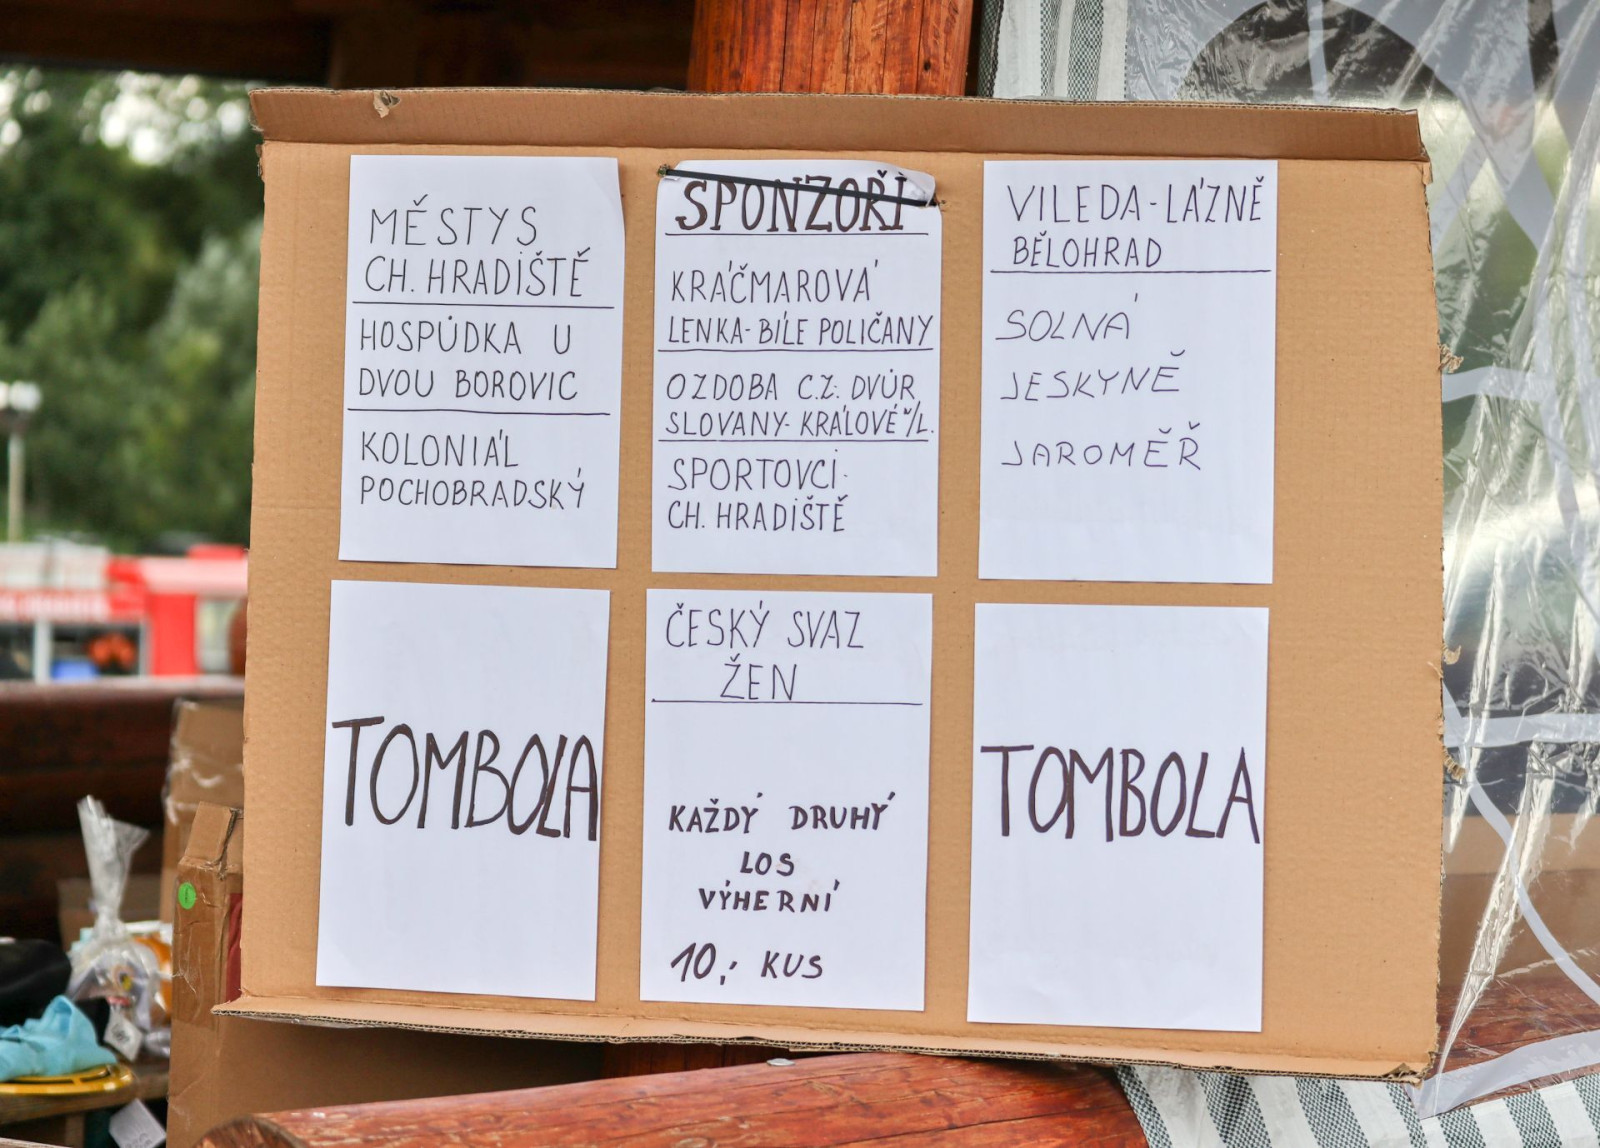 MĚSTYS
CH. HRADIŠTĚ
HOSPŮDKA U
DVOU BOROVIC
KOLONIÁL
POCHOBRADSKÝ
SPONZOŘI
KRÁČMAROVÁ
LENKA-BÍLÉ POLIČANY
OZDOBA C.Z. DVŮR
SLOVANY-KRÁLOVÉ N/L.
SPORTOVCI-
CH. HRADIŠTĚ
VILEDA-LÁZNĚ
BĚLOHRAD
SOLNÁ
JESKYNĚ
JAROMĚŘ
TOMBOLA
ČESKÝ SVAZ
ŽEN
KAŽDÝ DRUHÝ
LOS
VÝHERNÍ
10,- KUS
TOMBOLA